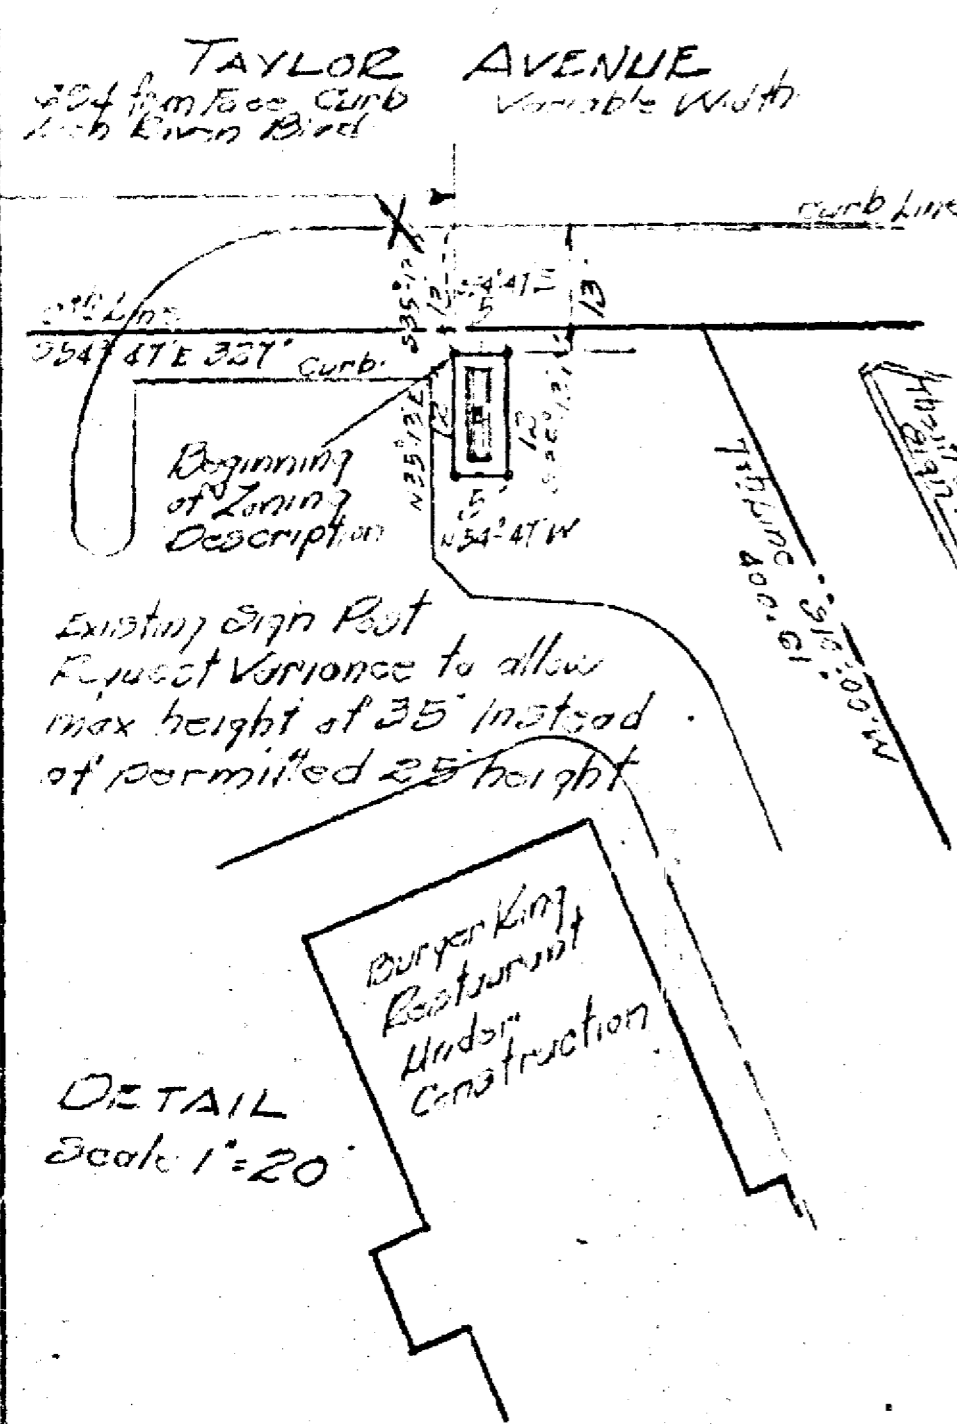 TAYLOR AVENUE
from Face Curb
Variable Width
Curb Line
S35°13'
13'
S54°47'E
5'
13'
Line
S54°47'E 327'
Curb
N35°13'E
12
12
5'
N54°47'W
Beginning
of Zoning
Description
7th Line
400.61'
Sign
Existing Sign Post
Request Variance to allow
max height of 35' instead
of permitted 25' height
Burger King
Restaurant
Under
Construction
DETAIL
Scale 1"=20'